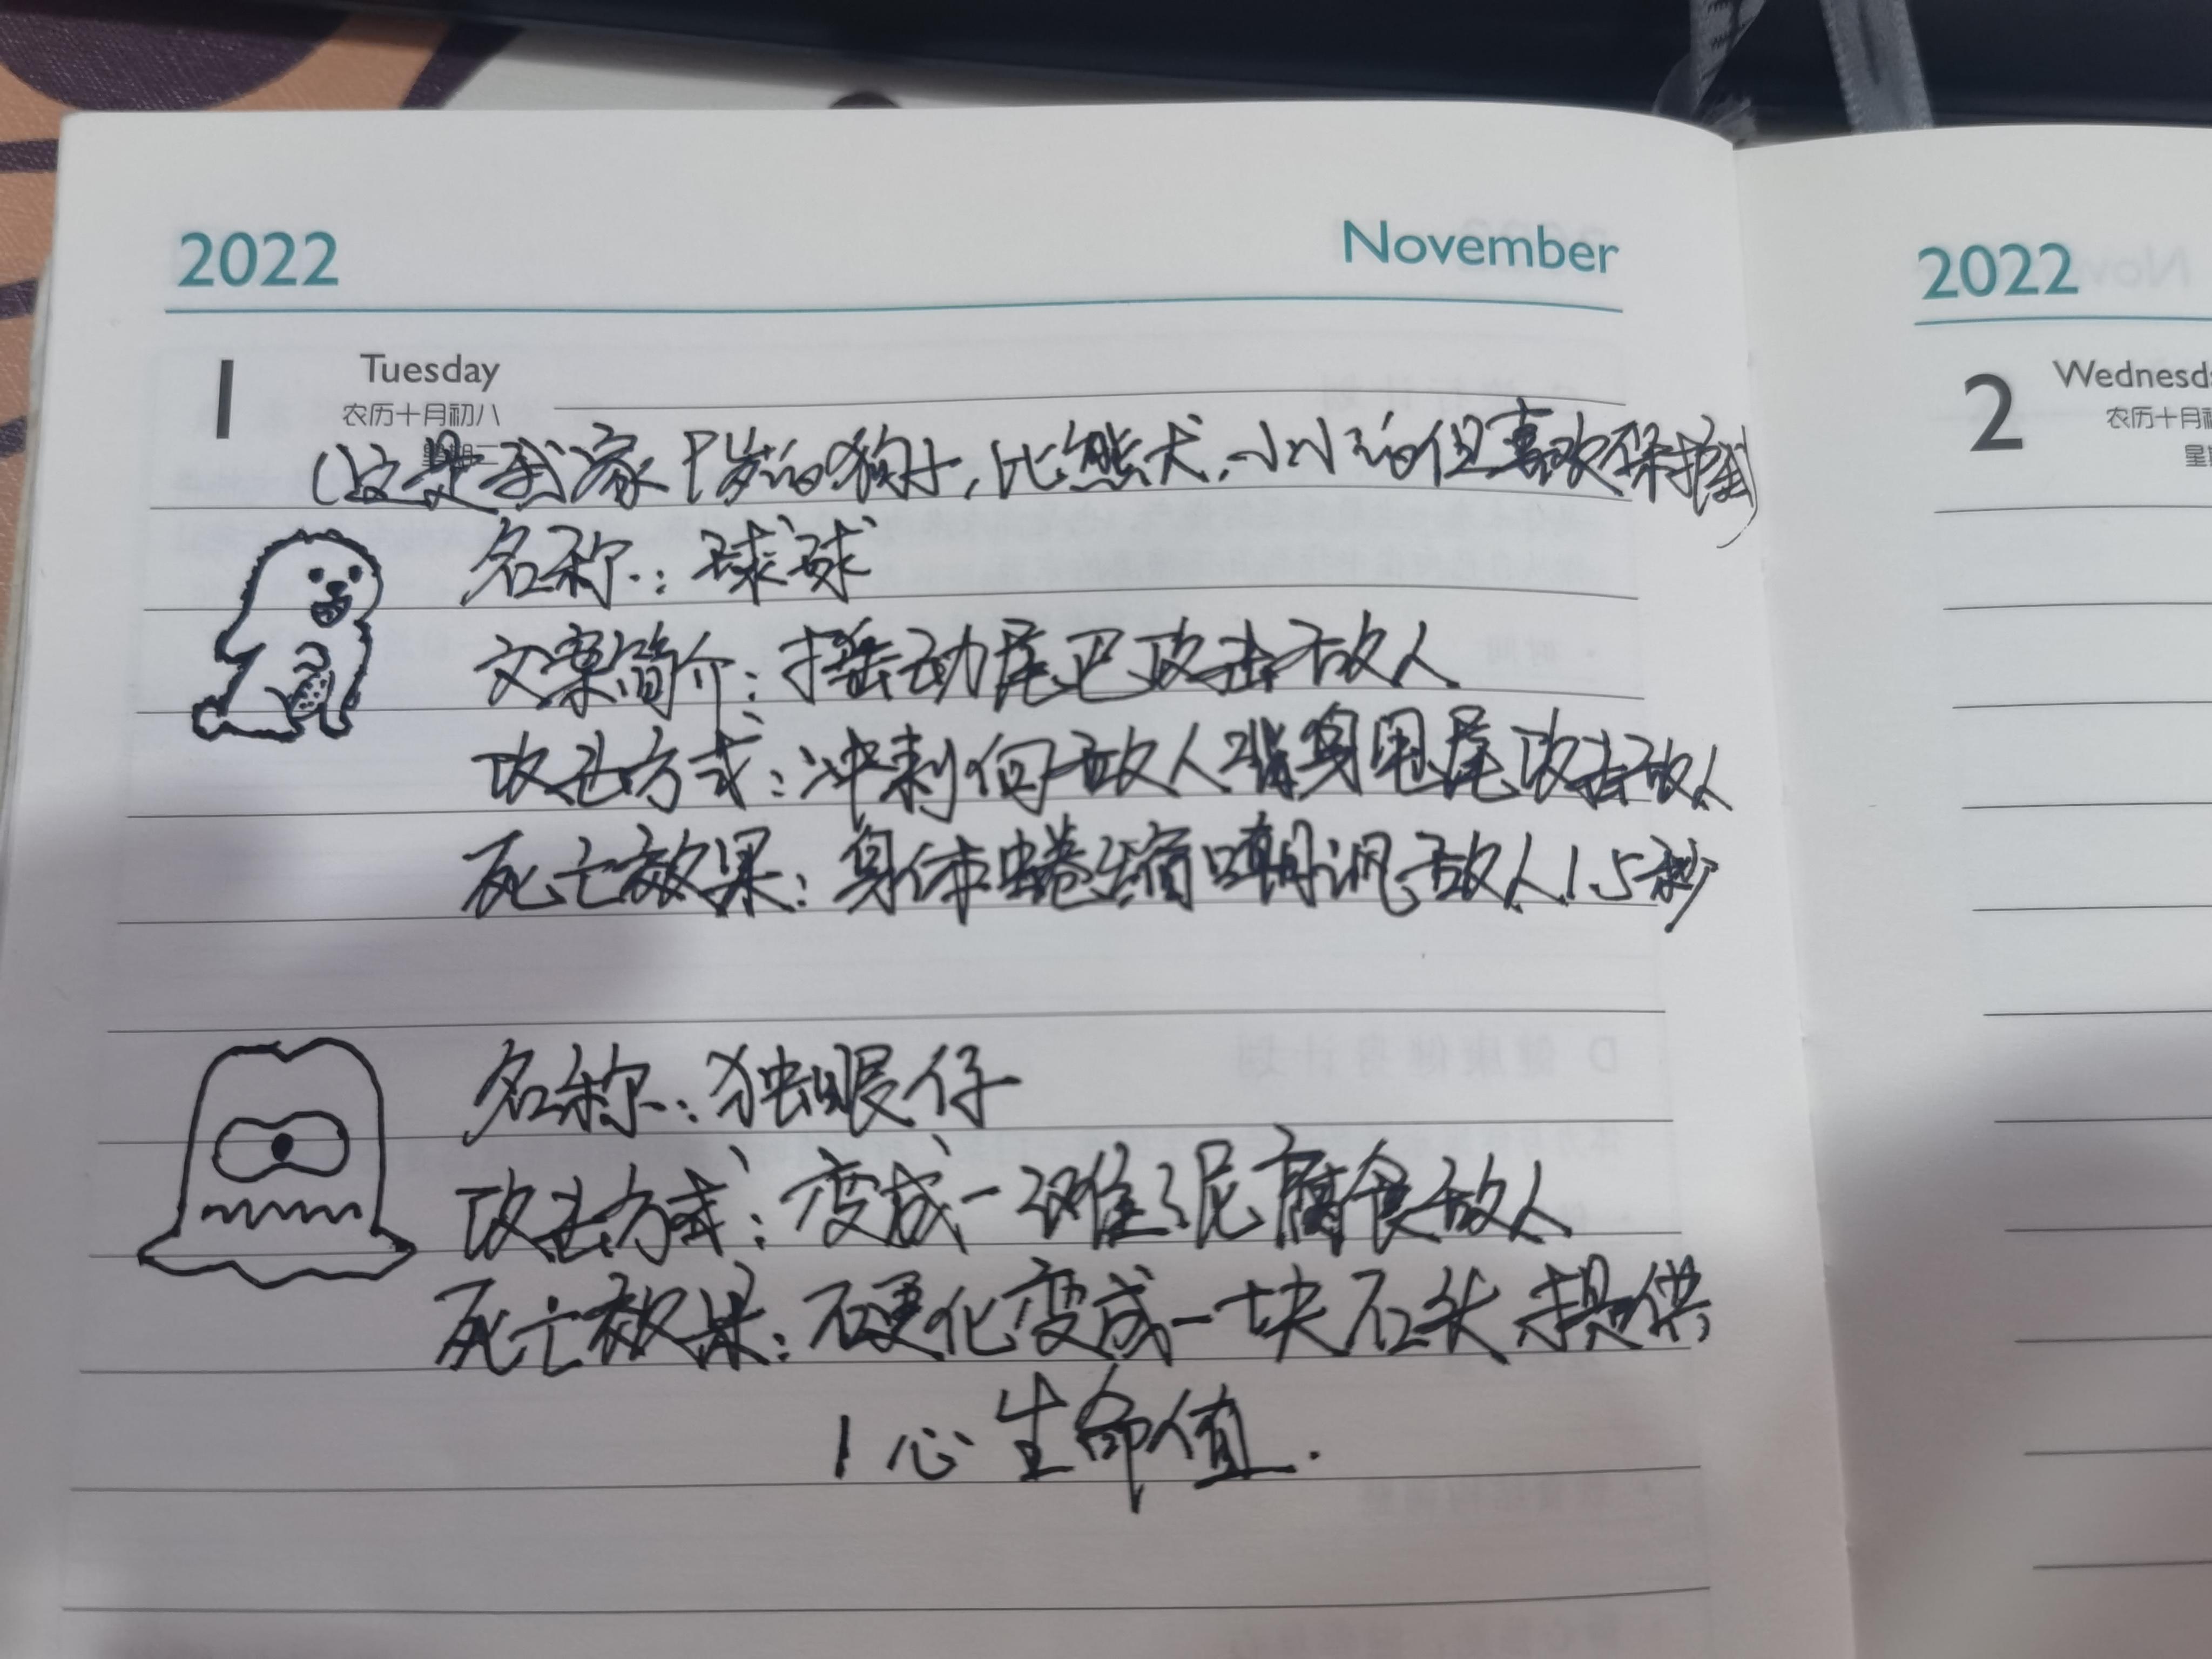 2022
November
1
Tuesday
农历十月初八
星期二
(这是我家十岁的狗子,比熊犬,小小的但喜欢保护我)
名称:球球
文案简介:摇动尾巴攻击敌人
攻击方式:冲刺向敌人背身甩尾攻击敌人
死亡效果:身体蜷缩嘲讽敌人1.5秒
名称:独眼仔
攻击方式:变成一滩泥腐食敌人
死亡效果:石更化变成一块石头提供
1心生命值.
2022
2
农历十月初
星